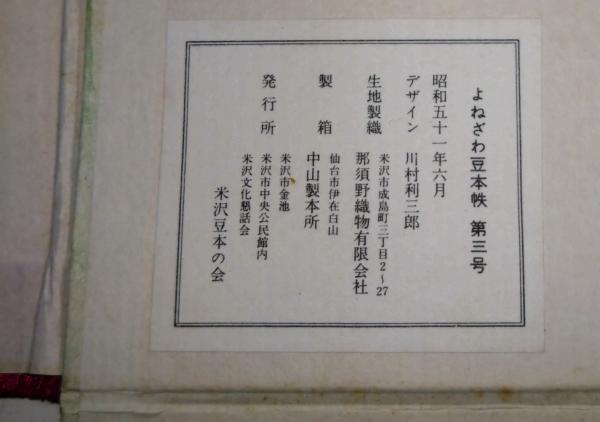 よねざわ豆本帙 第三号
昭和五十一年六月
デザイン 川村利三郎
米沢市成島町三丁目2～27
生地製織 那須野織物有限会社
仙台市伊在白山
製箱 中山製本所
米沢市金池
発行所 米沢市中央公民館内
米沢文化懇話会
米沢豆本の会